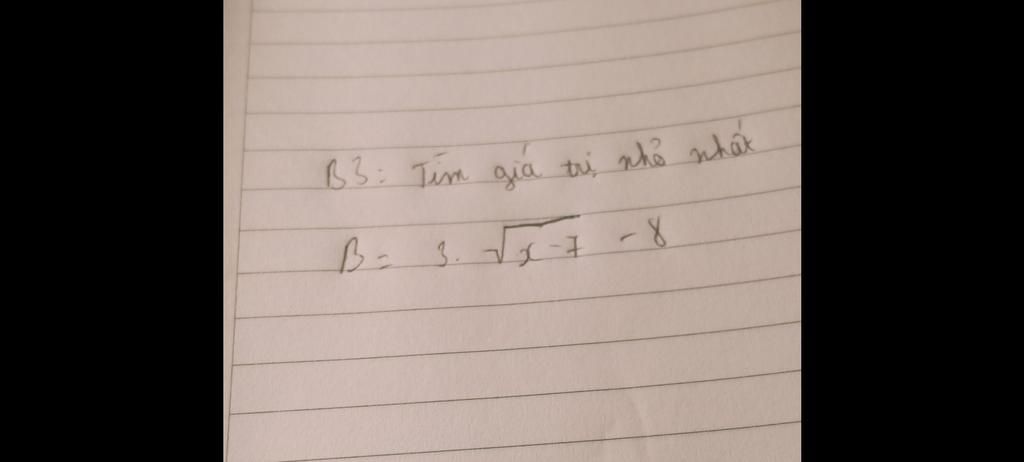 B3: Tìm giá trị nhỏ nhất
B = 3. √x-7 - 8